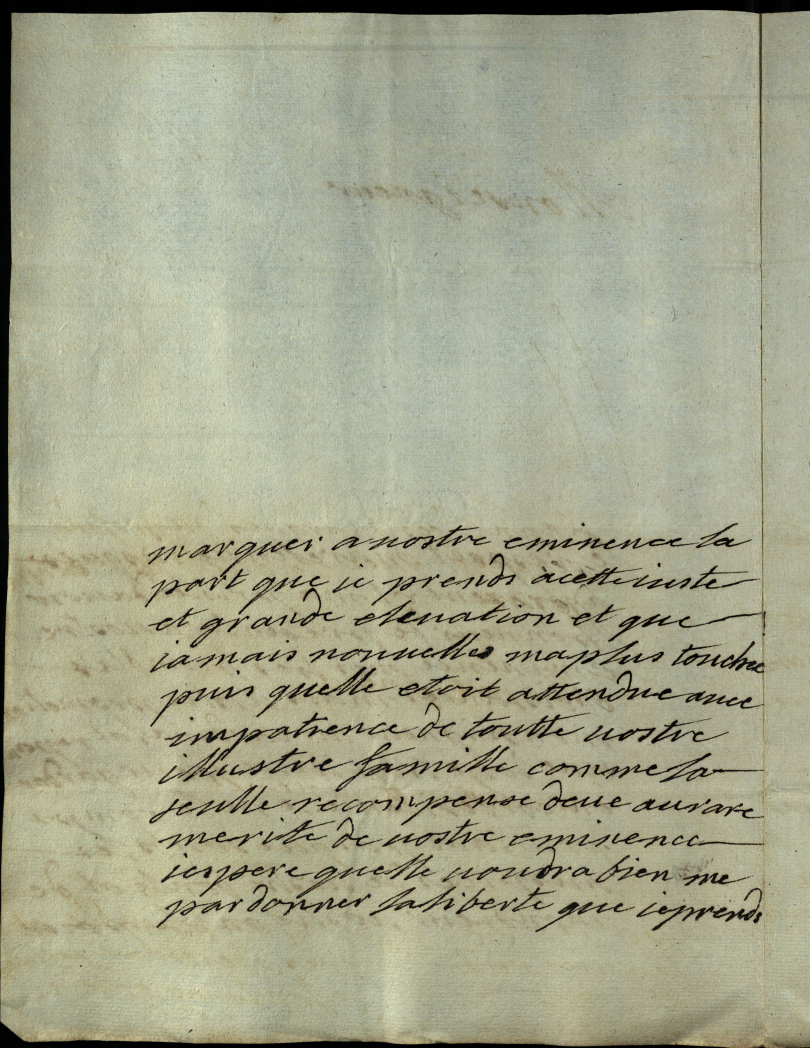 marquer a uostre eminence la
part que ie prends acette iuste
et grande eleuation et que
iamais nouuelles maplus touchee
puis quelle etoit attendue auec
impatience de toutte uostre
illustre famille comme la
seulle recompense deue aurare
merite de uostre eminence
iespere quelle uoudra bien me
pardonner laliberte que ieprends